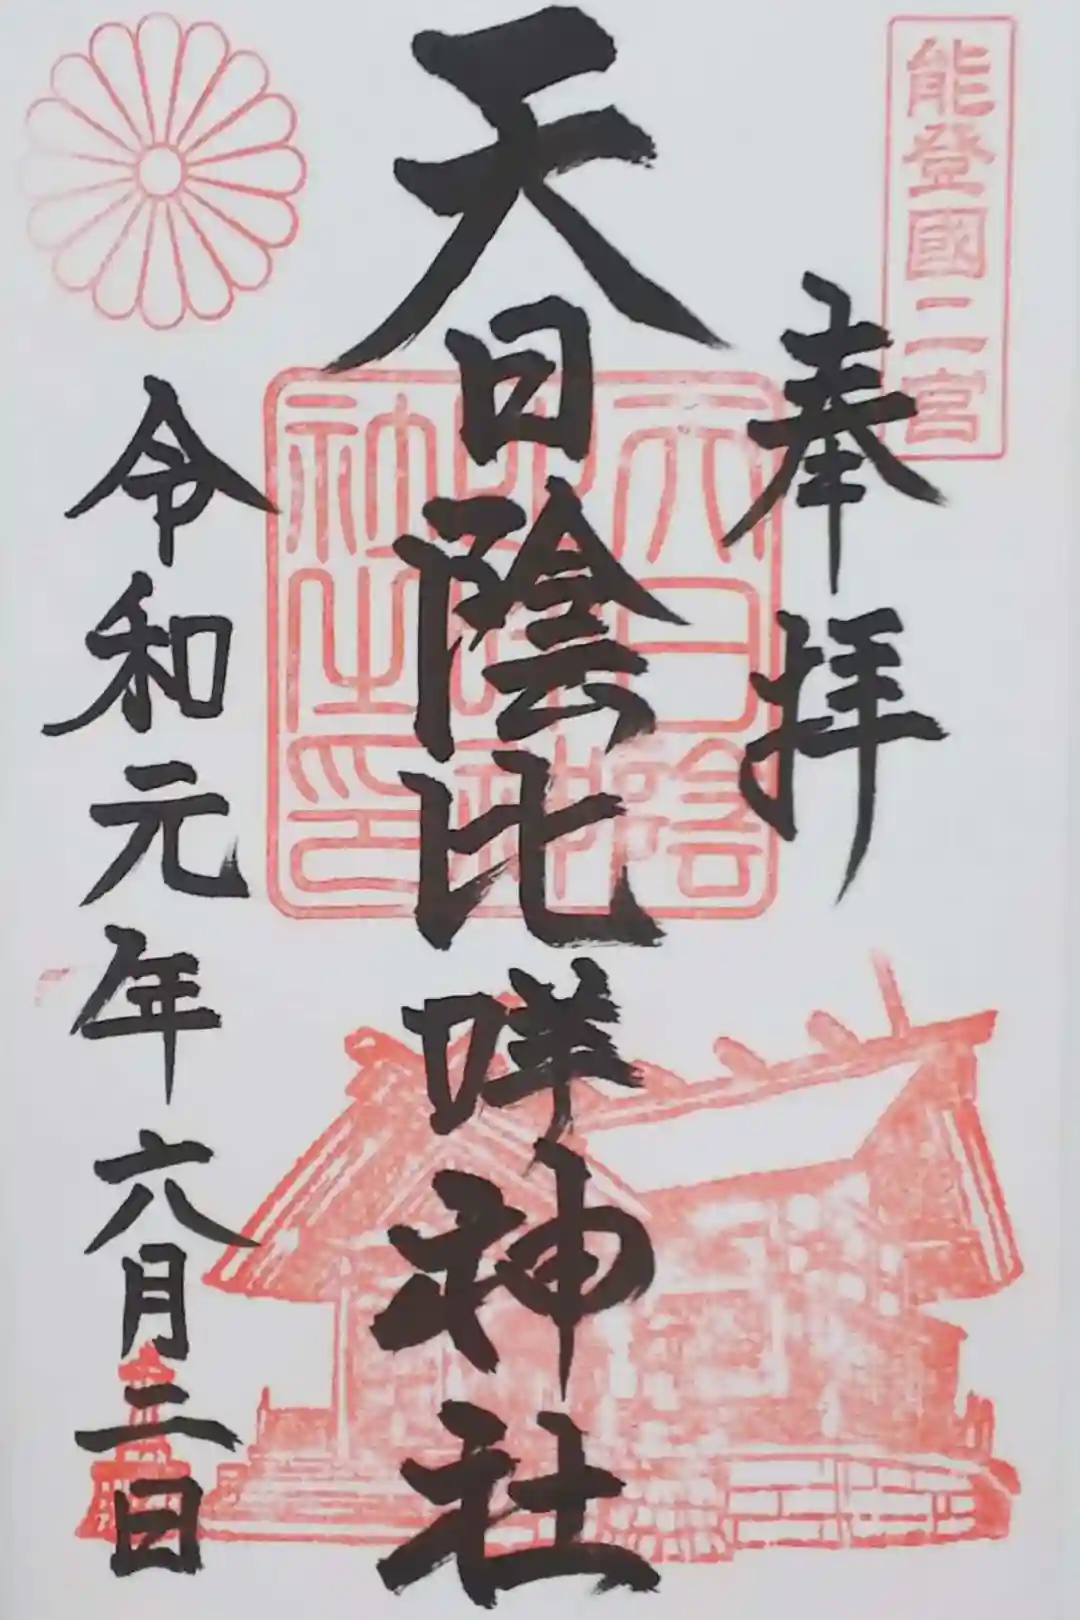 能登國二宮
奉拝
天日陰比咩神社
天日陰
比咩神
社之印
令和元年六月二日